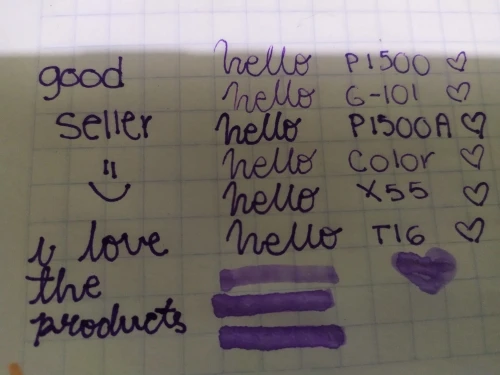 good
seller
i love
the
products
hello P1500 ♡
hello G-101 ♡
hello P1500A ♡
hello Color ♡
hello X55 ♡
hello T16 ♡